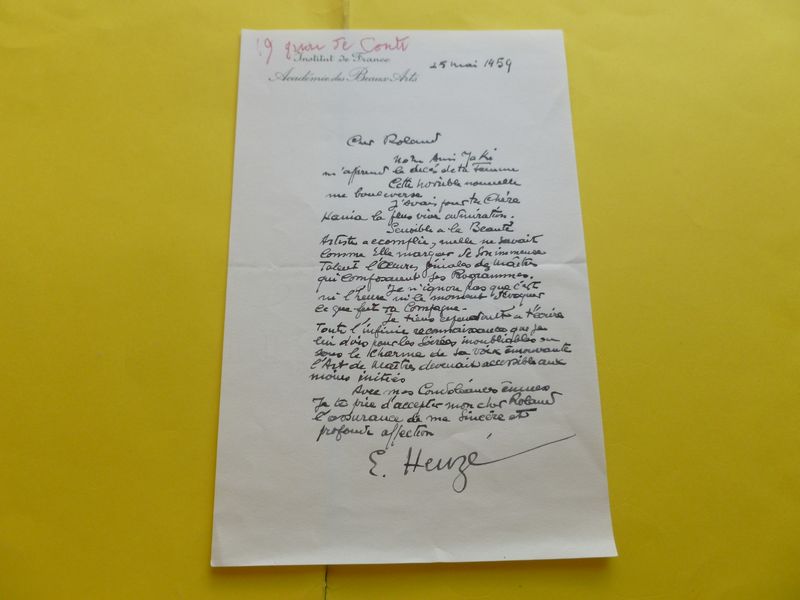 19 quai de Conti
Institut de France
Académie des Beaux-Arts
25 mai 1959
Cher Roland
Notre Ami Jaki
m'apprend le décès de ta Femme
Cette horrible nouvelle
me bouleverse
J'avais pour ta Chère
Hania la plus vive admiration.
Sensible a la Beauté
Artiste accomplie, nulle ne savait
comme Elle marquer de son immense
Talent l'Œuvres géniales de Maîtres
qui composaient ses Programmes.
Je n'ignore pas que c'est
ni l'heure ni le moment d'évoquer
ce que fut ta Compagne.
Je tiens cependant a t'écrire
Toute l'infinie reconnaissance que je
lui dois pour les Soirées inoubliables ou
sous le Charme de sa Voix émouvante
l'Art de Maîtres devenait accessible aux
moins initiés
Avec mes Condoléances émues
Je te prie d'accepter mon cher Roland
l'assurance de ma Sincère et
profonde affection
E. Heuzé